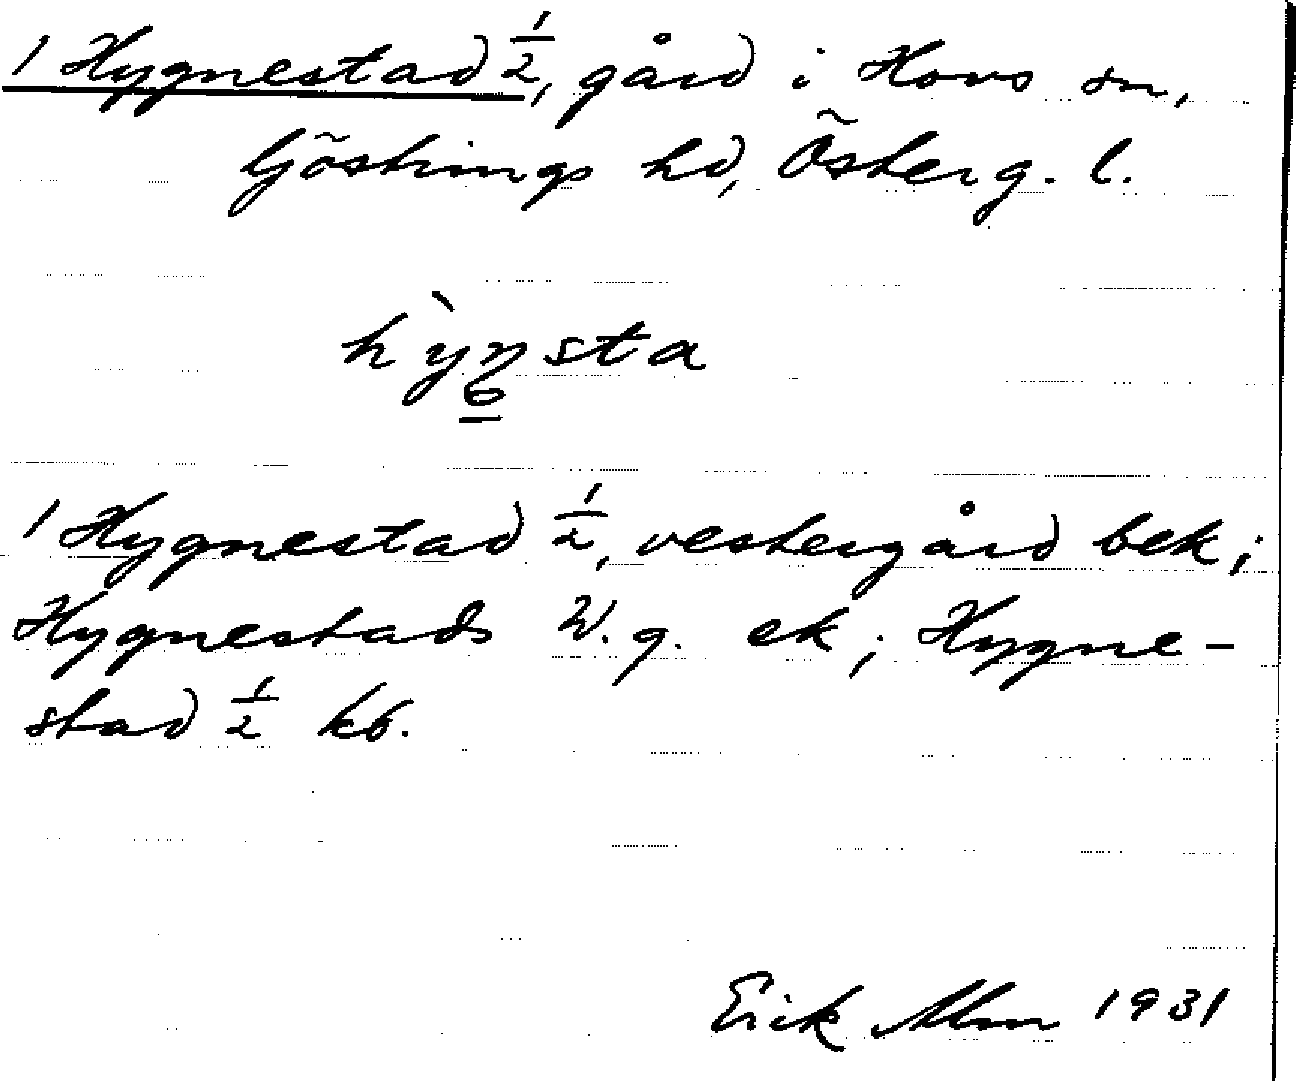 1 Hygnestad 1/2, gård i Hovs sn,
Göstrings hd, Österg. l.
hỳŋsta
1 Hygnestad 1/2, vestergård bek;
Hygnestads W.g. ek; Hygne-
stad 1/2 kb.
Erik Alm 1931